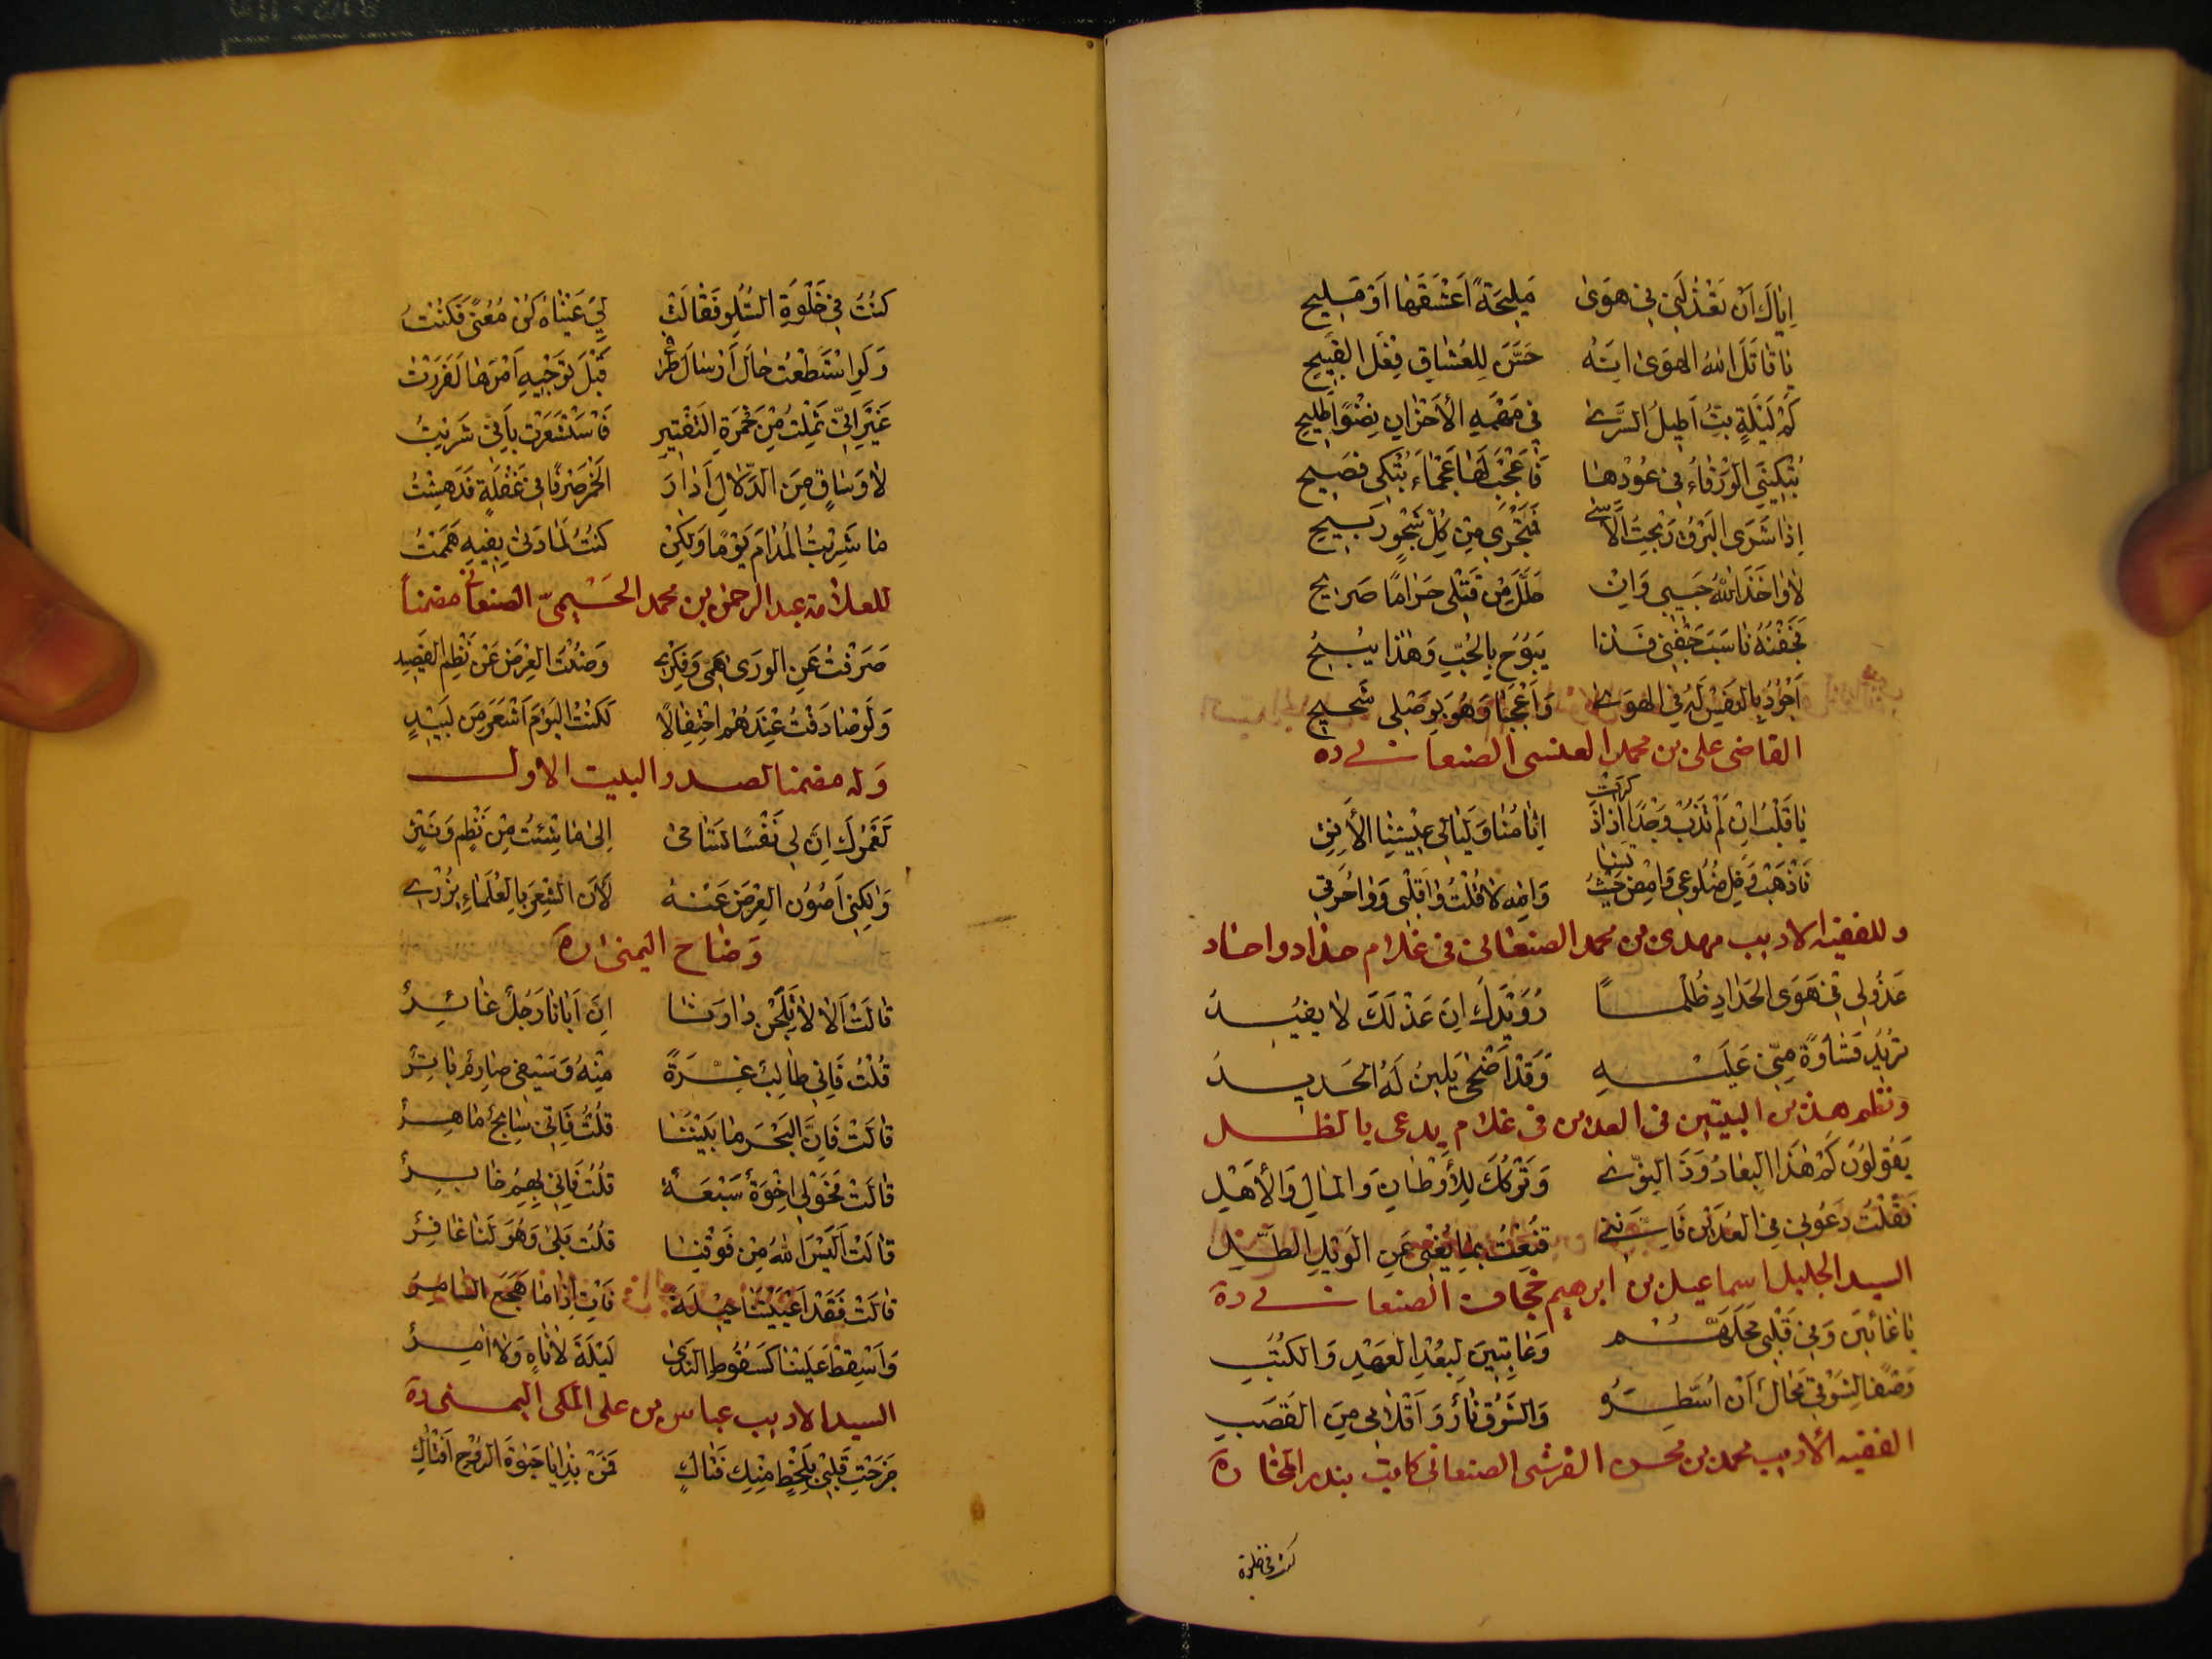 اِيَّاكَ اَنْ تَعْذُلَنِي فِي هَوَى مَلِيحَةً اَعْشَقُهَا اَوْ مَلِيح
يَا قَاتَلَ اللهُ الهَوَى اِنَّهُ حَسَّنَ لِلعُشَّاقِ فِعْلَ القَبِيح
كَمْ لَيْلَةٍ بِتُّ اُطِيلُ السُّرَى فِي مَهْمَهِ الأَحْزَانِ نِضْوًا طَلِيح
تُبْكِينِي الوَرْقَاءُ فِي عُودِهَا فَاعْجَبْ لَهَا عَجْمَاءَ تُبْكِي فَصِيح
اِذَا شَرَى البَرْقُ رَبْحِتُ الأَسَى فَمَتْجَرِي مِنْ كُلِّ شَجْوٍ رَبِيح
لَا وَاخَذَ اللهُ حَبِيبِي وَاِنْ حَلَّلَ مِنْ قَتْلِي حَرَامًا صَرِيح
فَجَفْنُهُ نَاسَبَ جَفْنِي فَذَا يَبُوحُ بِالحُبِّ وَهٰذَا يُبِيحُ
اَجُودُ بِالنَفْسِ لَهُ فِي الهَوَى وَاعَجَبًا وَهْوَ بِوَصْلِي شَحِيح
القاضى على بن محمد العنسى الصنعانے ره
يَا قَلْبُ اِنْ لَمْ تَذُبْ وَجْدًا اِذَا ذُكِرَتْ اَيَّامُنَا وَلَيَالِي عَيْشِنَا الأَنِقِ
فَاذْهَبْ وَخَلِّ ضُلُوعِي وَامْضِ حَيْثُ تَشَا وَاللهِ لَا قُلْتُ وَا قَلْبِي وَوَا حُرَقِي
وللفقيه الاديب مهدى بن محمد الصنعانى فى غلام حداد واجاد
عَذُولِي فِي هَوَى الحَدَّادِ ظُلْمًا رُوَيْدَكَ اِنَّ عَذْلَكَ لَا يُفِيدُ
تُرِيدُ قَسَاوَةً مِنِّي عَلَيْهِ وَقَدْ اَضْحَى يَلِينُ لَهُ الحَدِيدُ
ونظم هذين البيتين فى العدين فى غلام يدعى بالظل
يَقُولُونَ كَمْ هٰذَا البِعَادُ وَذَا النَوَى وَتَرْكُكَ لِلأَوْطَانِ وَالمَالِ وَالأَهْلِ
فَقُلْتُ دَعُونِي فِي العُدَيْنِ فَاِنَّنِي قَنِعْتُ بِمَا يُغْنِي عَنِ الوَبْلِ الطَّلِّ
السيد الجليل اسماعيل بن ابرهيم حجاف الصنعانے ره
يَا غَائِبَينَ وَفِي قَلْبِي مَحَلُّهُمُ وَعَاتِبِينَ لِبُعْدِ العَهْدِ وَالكُتُبِ
وَصْفًا لِشَوْقِي مُحَالٌ اَنْ اُسَطِّرَهُ وَالشَوْقُ نَارٌ وَاَقْلَامِي مِنَ القَصَبِ
الفقيه الأديب محمد بن محسن القرشى الصنعانى كاتب بندر المخا ره
كنت فى خلوة
كُنْتُ فِي خَلْوَةِ السُّلُوِّ فَقَالَتْ لِيَ عَيْنَاهُ كُنْ مُعَنًّى فَكُنْتُ
وَلَوِ اسْتَطَعْتُ حَالَ اَرْسَالَ طَرْفِي قَبْلَ تَوْجِيهِ اَمْرِهَا لَفَرَرْتُ
غَيْرَ اَنِّي ثَمِلْتُ مِنْ خَمْرَةِ التَفْتِيرِ فَاسْتَشْعَرَتْ بِاَنِّي شَرِبْتُ
لَا وَسَاقٍ مِنَ الدَّلَالِ اَدَارَ الخَمْرَ صِرْفًا فِي غَفْلَةٍ فَدَهِشْتُ
مَا شَرِبْتُ المُدَامَ يَوْمًا وَلٰكِنْ كُنْتُ لَمَّا دَنَى بِفِيهِ هَمَمْتُ
للعلامة عبد الرحمن بن محمد الحَيْمِيّ الصنعانى مضمنا
صَرَفْتُ عَنِ الوَرَى هَمِّي وَفِكْرِي وَصُنْتُ العِرْضَ عَنْ نَظْمِ القَصِيدِ
وَلَوْ صَادَفْتُ عِنْدَهُمُ احْتِفَالًا لَكُنْتُ اليَوْمَ اَشْعَرَ مِنْ لَبِيدٍ
وَله مضمنا لصدر البيت الاول
لَعَمْرُكَ اِنَّ لِي نَفْسًا تَسَامَى اِلَى مَا شِئْتُ مِنْ نَظْمٍ وَنَثْرٍ
وَلٰكِنِّي اَصُونُ العِرْضَ عَنْهُ لَأَنَّ الشِعْرَ بِالعُلَمَاءِ يُزْرِي
وَضاح اليمنى ره
قَالَتْ اَلَا لَا تَلِجَنْ دَارَنَا اِنَّ اَبَانَا رَجُلٌ غَائِرُ
قُلْتُ فَاِنِّي طَالِبٌ غِرَّةً مِنْهُ وَسَيْفِي صَارِمٌ بَاتِرُ
قَالَتْ فَاِنَّ البَحْرَ مَا بَيْنَنَا قُلْتُ فَاِنِّي سَابِحٌ مَاهِرُ
قَالَتْ فَحَوْلِي اِخْوَةٌ سَبْعَةٌ قُلْتُ فَاِنِّي لِهِمُ خَابِرُ
قَالَتْ اَلَيْسَ اللهُ مِنْ فَوْقِنَا قُلْتُ بَلَى وَهُوَ لَنَا غَافِرُ
قَالَتْ فَقَدْ اَعْيَيْتَنَا حِيلَةً فَاْتِ اِذَا مَا هَجَعَ السَّامِرُ
وَاَسْقِطْ عَلَيْنَا كَسُقُوطِ النَّدَى لَيْلَةَ لَا نَاهٍ وَلَا اٰمِرُ
السيد الاديب عباس بن على المكى اليمنى ره
جَرَحْتِ قَلْبِي بِلَحْظٍ مِنْكِ فَتَّاكِ فَمَنْ بِذَا يَا حَيٰوةَ الرُّوْحِ اَفْتَاكِ